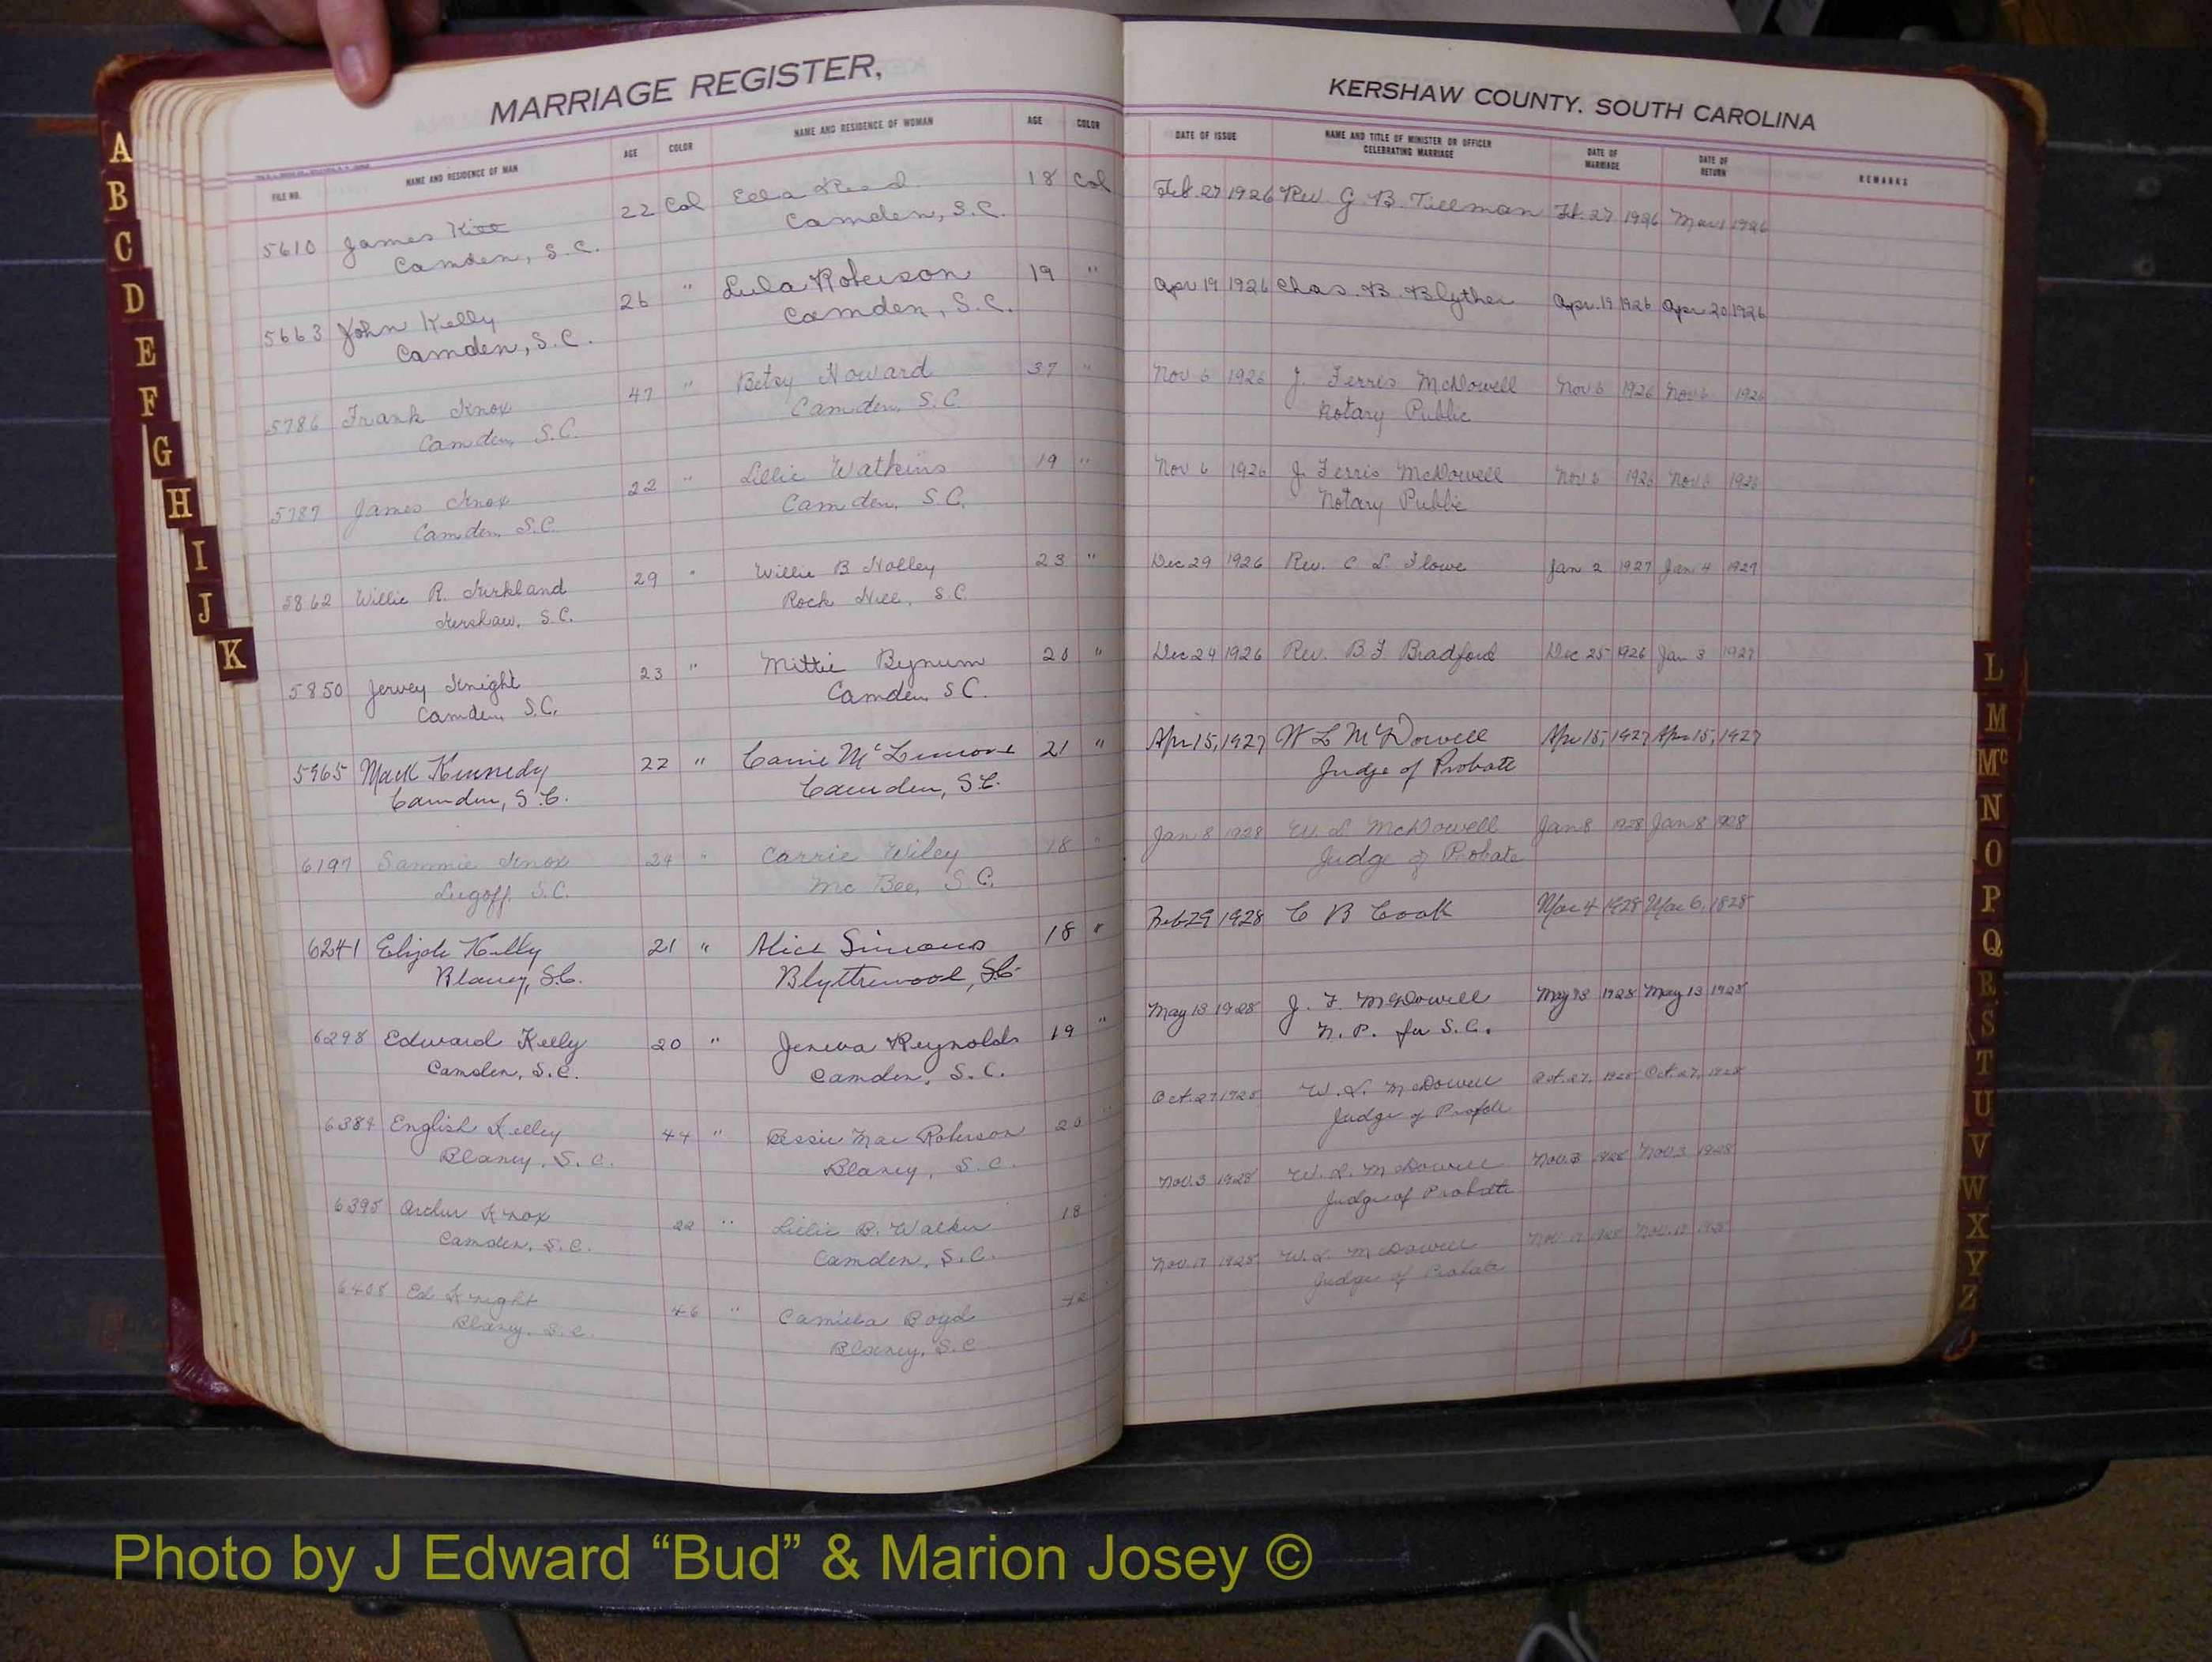 MARRIAGE REGISTER,
KERSHAW COUNTY. SOUTH CAROLINA
FILE NO. NAME AND RESIDENCE OF MAN AGE COLOR NAME AND RESIDENCE OF WOMAN AGE COLOR DATE OF ISSUE NAME AND TITLE OF MINISTER OR OFFICER CELEBRATING MARRIAGE DATE OF MARRIAGE DATE OF RETURN REMARKS
5610 James 22 Col Ella 18 Col Feb. 27 1926 Rev. G. B. Tillman Feb. 27 1926 Mar 1 1926
Camden, S.C. Camden, S.C.
5663 John Kelly 26 " Lula Roberson 19 " Apr 19 1926 Chas. B. Blyther Apr. 19 1926 Apr 20 1926
Camden, S.C. Camden, S.C.
5786 Frank Knox 47 " Betsy Howard 37 " Nov 6 1926 J. Ferris McDowell Nov 6 1926 Nov 6 1926
Camden, S.C. Camden, S.C. Notary Public
5787 James Knox 22 " Lillie Watkins 19 " Nov 6 1926 J. Ferris McDowell Nov 6 1926 Nov 6 1926
Camden, S.C. Camden, S.C. Notary Public
5862 Willie R. Kirkland 29 " Willie B Holley 23 " Dec 29 1926 Rev. C. L. Flowe Jan 2 1927 Jan 4 1927
Kershaw, S.C. Rock Hill, S.C
5850 Jervey Knight 23 " Mittie Bynum 20 " Dec 24 1926 Rev. B F Bradford Dec 25 1926 Jan 3 1927
Camden, S.C. Camden, S.C.
5965 Mack Kennedy 22 " Carrie 21 " Apr 15, 1927 W L McDowell Apr 15, 1927 Apr 15, 1927
Camden, S.C. Camden, S.C. Judge of Probate
6197 Sammie Knox 24 " Carrie Wiley 18 " Jan 8 1928 W. L McDowell Jan 8 1928 Jan 8 1928
Lugoff, S.C. Mc Bee, S.C. Judge of Probate
6241 Kelly 21 " Alice Simons 18 " Feb 29 1928 C B Cook Mar 4 1928 Mar 6, 1828
Blaney, S.C. Blythewood, S.C.
6298 Edward Kelly 20 " Jeneva Reynolds 19 " May 13 1928 J. F. McDowell May 13 1928 May 13 1928
Camden, S.C. Camden, S.C. N. P. for S.C.
6384 English Kelley 44 " Essie Mae Roberson 20 " Oct. 27 1928 W. L. McDowell Oct. 27, 1928 Oct. 27, 1928
Blaney, S.C. Blaney, S.C. Judge of
6395 Knox 22 " Lillie B. Walker 18 Nov. 3 1928 W. L. McDowell Nov. 3 1928 Nov. 3 1928
Camden, S.C. Camden, S.C. Judge of Probate
6408 Ed Knight 46 " Camilla Boyd 42 Nov. 17 1928 W. L. McDowell Nov. 17 1928 Nov. 17 1928
Blaney, S.C. Blaney, S.C Judge of Probate
A
B
C
D
E
F
G
H
I
J
K
L
M
Mc
N
O
P
Q
R
S
T
U
V
W
X
Y
Z
Photo by J Edward “Bud” & Marion Josey ©